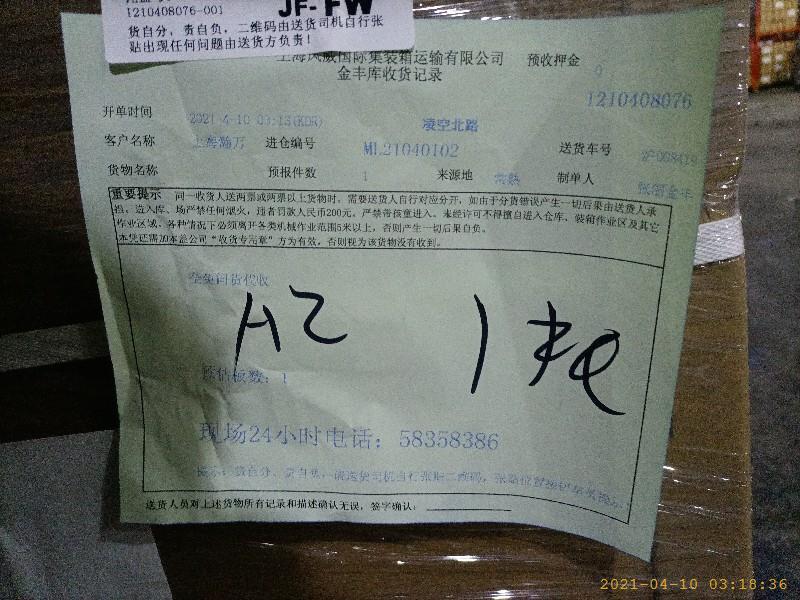 1210408076-001
JF-FW
货自分，责自负，二维码由送货司机自行张
贴出现任何问题由送货方负责！
上海凤威国际集装箱运输有限公司 预收押金 0
金丰库收货记录
1210408076
开单时间 2021-4-10 03:13(KDR) 凌空北路
客户名称 上海瀚万 进仓编号 ML21040102 送货车号
货物名称 预报件数 1 来源地 常熟 制单人
重要提示 同一收货人送两票或两票以上货物时，需要送货人自行对应分开，如由于分货错误产生一切后果由送货人承
担，造入库、场严禁任何烟火，违者罚款人民币200元，严禁带孩童进入，未经许可不得擅自进入仓库、装箱作业区及其它
作业区域，各种情况下必须离开各类机械作业范围5米以上，否则产生一切后果自负。
本凭证需加本盖公司“收货专用章”方为有效，否则视为该货物没有收到。
H2 1
原估板数：1
现场24小时电话：58358386
提示：货自分，责自负，请送货司机自行张贴二维码，
送货人员对上述货物所有记录和描述确认无误，签字确认：
2021-04-10 03:18:36